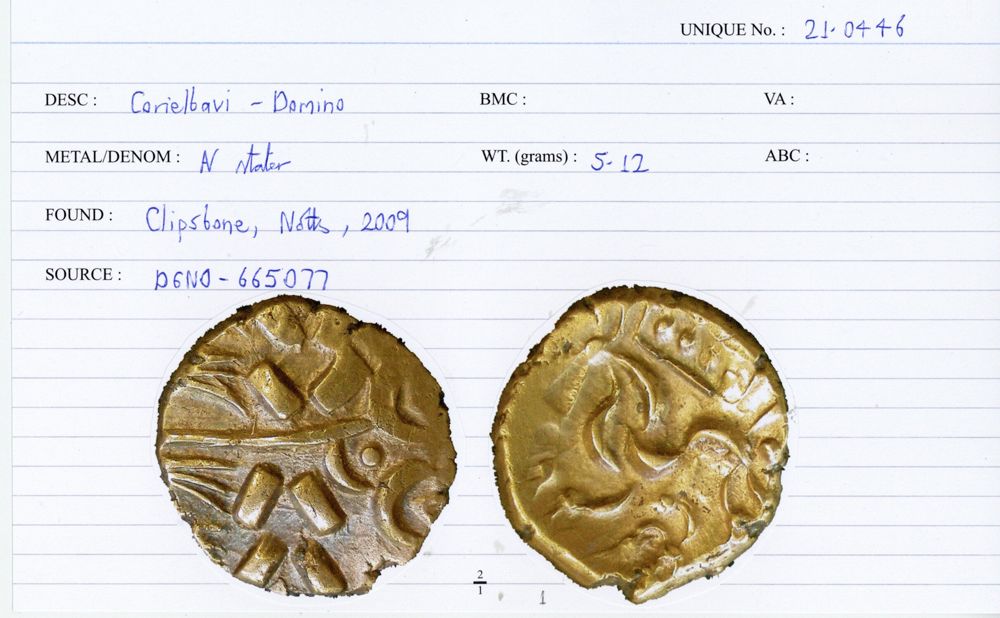 UNIQUE No. : 21.0446
DESC : Corieltavi - Domino BMC : VA :
METAL/DENOM : N stater WT. (grams) : 5.12 ABC :
FOUND : Clipstone, Notts, 2009
SOURCE : DENO-665077
2
1
1